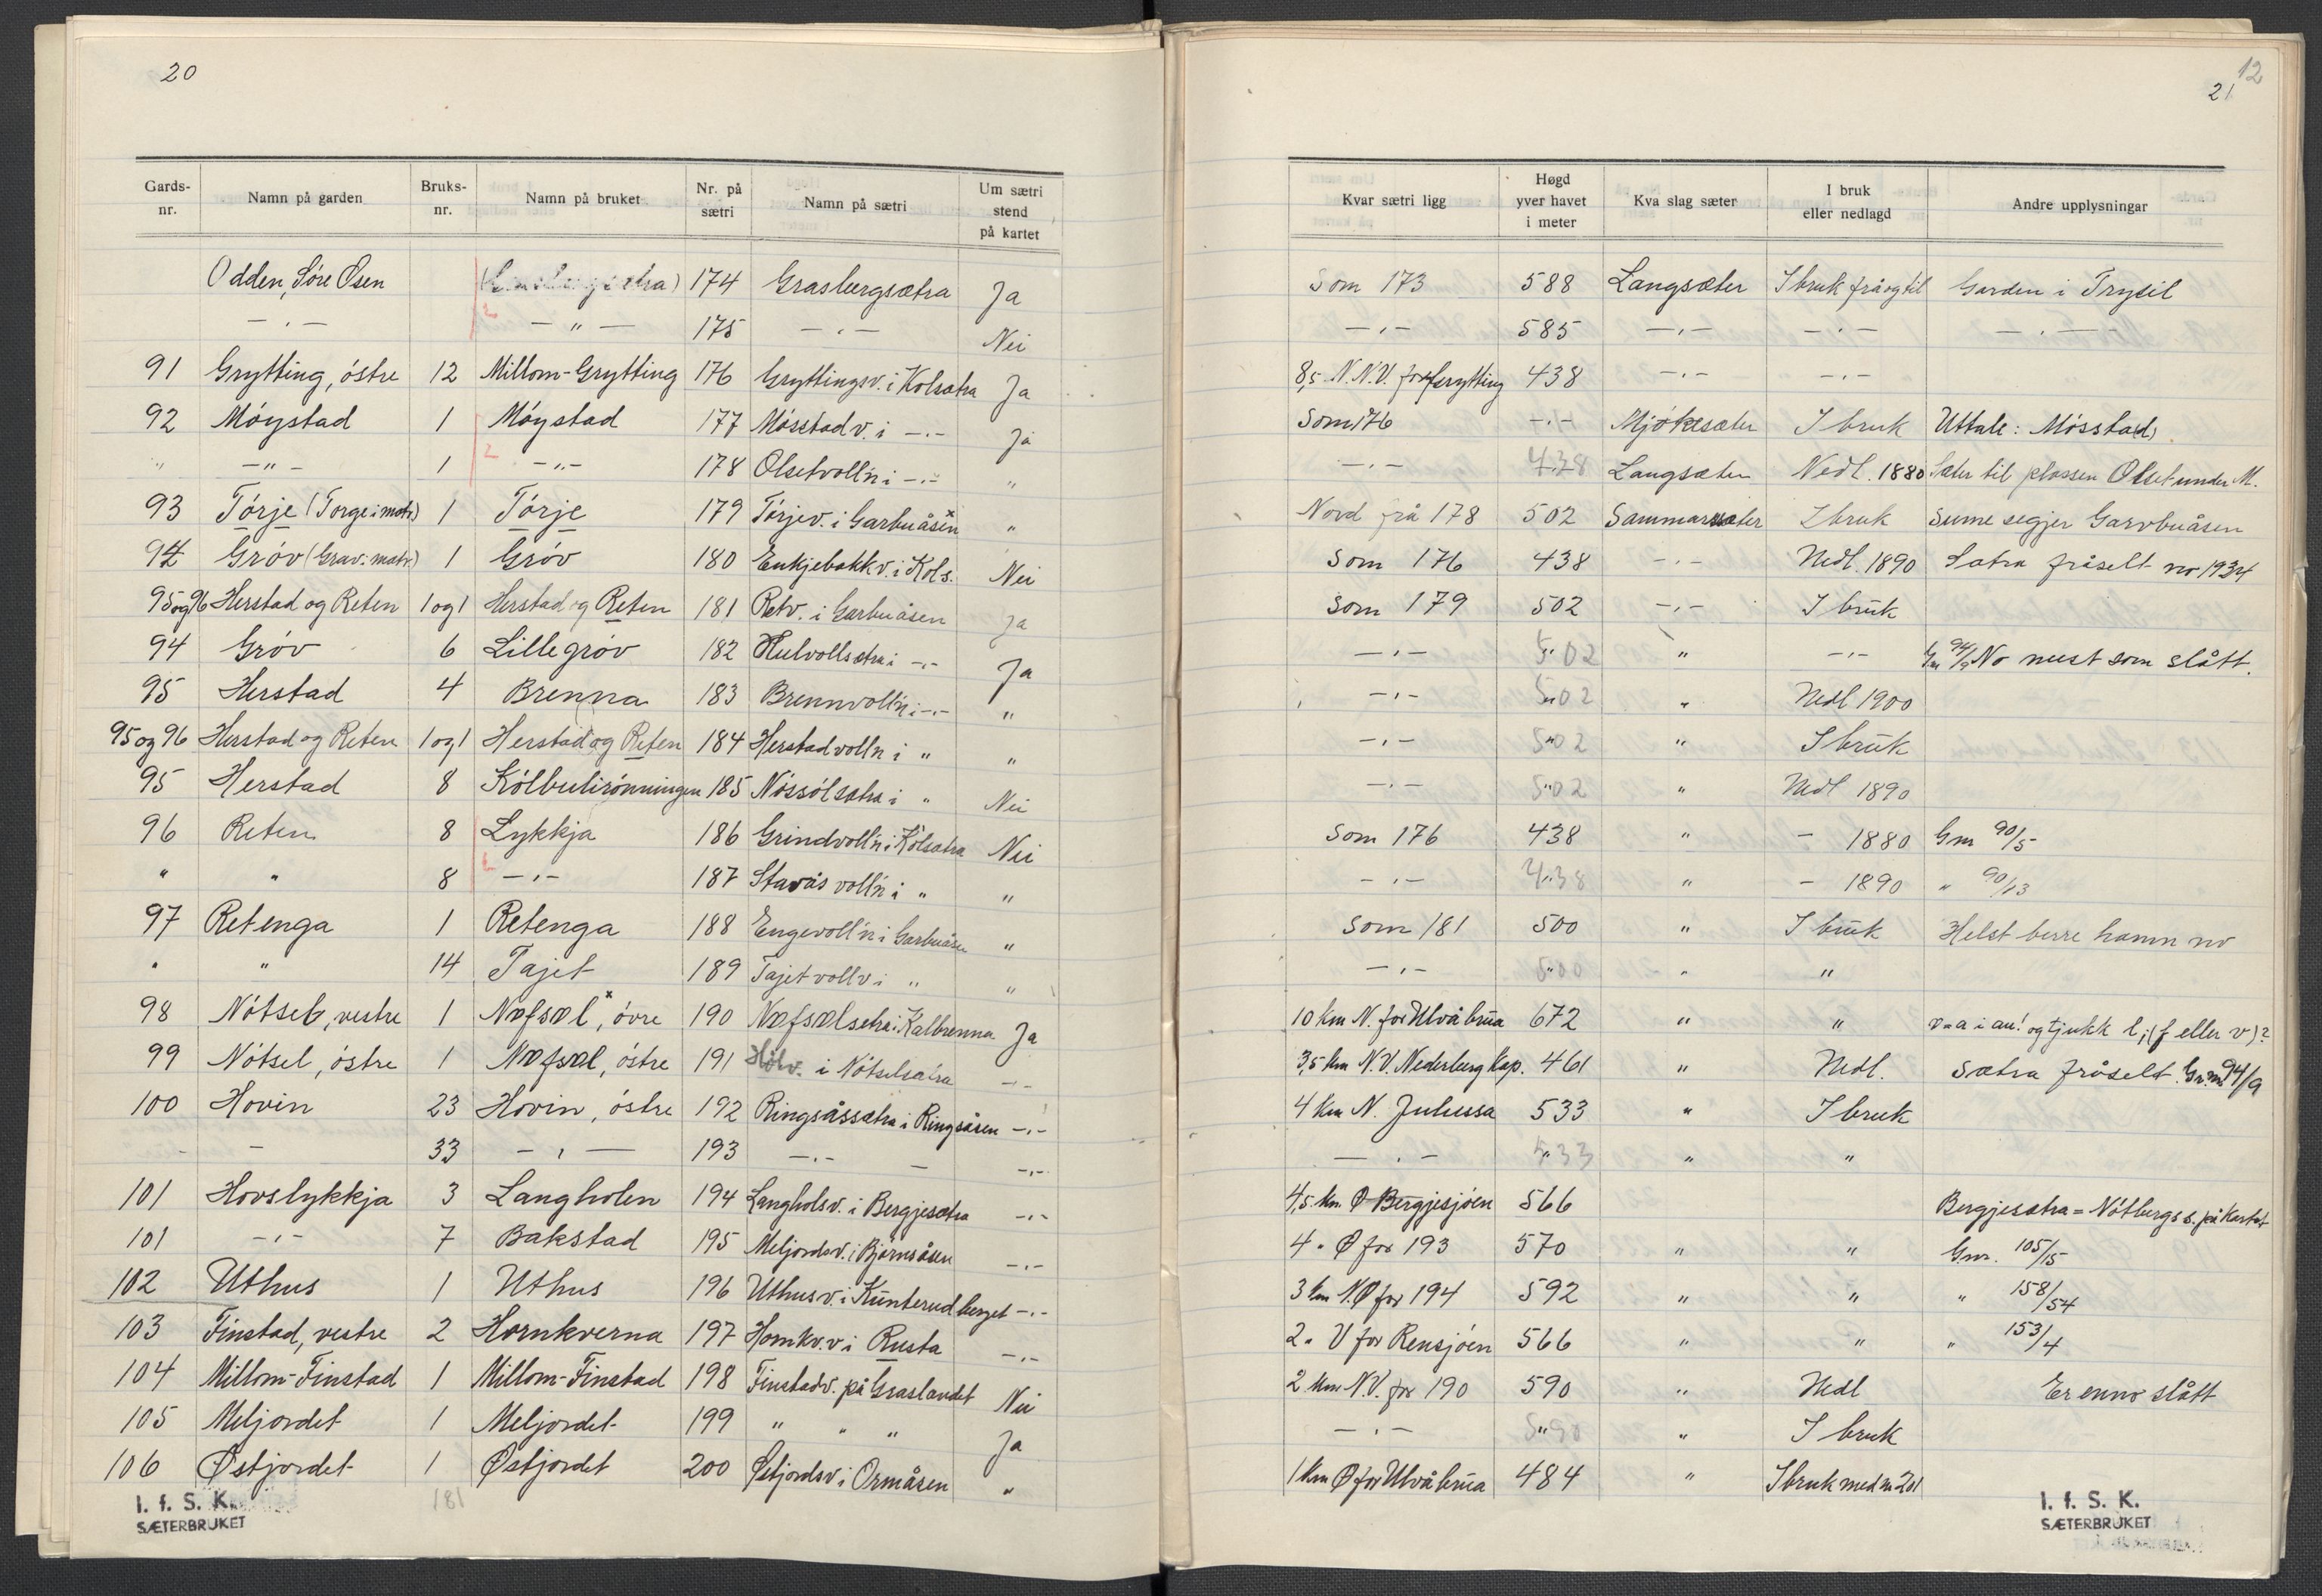 20
Gards-nr. Namn på garden Bruks-nr. Namn på bruket Nr. på sætri Namn på sætri Um sætri stend på kartet
Odden, Søre Osen 174 Grasbergsætra Ja
—"— —"— 175 —"— Nei
91 Grytting, østre 12 Millom-Grytting 176 Gryttingsv. i Kolsætra Ja
92 Møystad 1 Møystad 177 Møsstadv. i —"— Ja
" —"— 1 —"— 178 Olsetvoll'n i —"— "
93 Tørje (Torge i matr.) 1 Tørje 179 Tørjev. i Garbuåsen x "
94 Grøv (Grav i matr.) 1 Grøv 180 Enkjebakkv. i Kols. Nei
95 og 96 Herstad og Reten 1 og 1 Herstad og Reten 181 Retv. i Garbuåsen Ja
94 Grøv 6 Lillegrøv 182 Hulvollsætra i —"— Ja
95 Herstad 4 Brenna 183 Brennvoll'n i —"— "
95 og 96 Herstad og Reten 1 og 1 Herstad og Reten 184 Herstadvoll'n i " "
95 Herstad 8 Kølbulirønningen 185 Nøssølsætra i " Nei
96 Reten 8 Lykkja 186 Grindvoll'n i Kolsætra Nei
" " 8 —"— 187 Staväsvoll'n i " "
97 Retenga 1 Retenga 188 Engevoll'n i Garbuåsen "
" " 14 Tajet 189 Tajetvollv. i " "
98 Nøtsel, vestre 1 Næfsæl x, øvre 190 Næfsælsetra i Kalbrenna Ja
99 Nøtsel, østre 1 Næfsæl, østre 191 i Nøtselsætra —"—
100 Hovin 23 Hovin, østre 192 Ringsåssætra i Ringsåsen —"—
— 33 —"— 193 —"— —"—
101 Hovslykkja 3 Langholen 194 Langholsv. i Bergjesætra —"—
101 —"— 7 Bakstad 195 Meljordsv. i Bjørnsåsen —"—
102 Uthus 1 Uthus 196 Uthusv. i Kunterudberget —"—
103 Finstad, vestre 2 Hornkverna 197 Hornkv.v. i Rusta —"—
104 Millom-Finstad 1 Millom-Finstad 198 Finstadv. på Graslandet Nei
105 Meljordet 1 Meljordet 199 " " " Ja
106 Østjordet 1 Østjordet 200 Østjordsv. i Ormåsen "
181
I. f. S. K.
SÆTERBRUKET
12
21
Kvar sætri ligg Høgd yver havet i meter Kva slag sæter I bruk eller nedlagd Andre upplysningar
Som 173 588 Langsæter I bruk frå og til Garden i Trysil
—"— 585 —"— —"— —"—
8,5 N.N.V. for Grytting 438 —"— —"—
Som 176 —"— Mjølkesæter I bruk Uttale: Møssta(d)
—"— 438 Langsæter Nedl. 1880 Sæter til plassen Olset under M.
Nord frå 178 502 Sammarsæter I bruk Sume segjer Garvbuåsen
Som 176 438 —"— Nedl. 1890 Sætra fråselt no 1934
Som 179 502 —"— I bruk
—"— 502 " —"— Gm 94/9 No mest som slått.
—"— 502 " Nedl 1900
—"— 502 " I bruk
—"— 502 " Nedl 1890
Som 176 438 " — 1880 Gm 90/5
—"— 438 " — 1890 " 90/13
Som 181 500 " I bruk Helst berre hamn no
—"— 500 " "
10 km N. for Ulvåbrua 672 " " æ=a i au! og tjukk l; (f eller v)?
3,5 km N.V. Nederberg kap. 461 " Nedl. Sætra fråselt. Gm 94/9
4 km N. Julussa 533 " I bruk
—"— 533 " "
4,5 km Ø Bergjesjøen 566 Bergjesætra = Nøtbergss. på kartet
4 " Ø for 193 570 " " Gm. 105/15
3 km N.Ø for 194 592 " " " 158/54
2 " V for Rensjøen 566 " " " 153/4
2 km N.V. for 190 590 " Nedl Er enno slått
—"— 590 " I bruk
1 km Ø for Ulvåbrua 484 " I bruk med nr 201
I. f. S. K.
SÆTERBRUKET